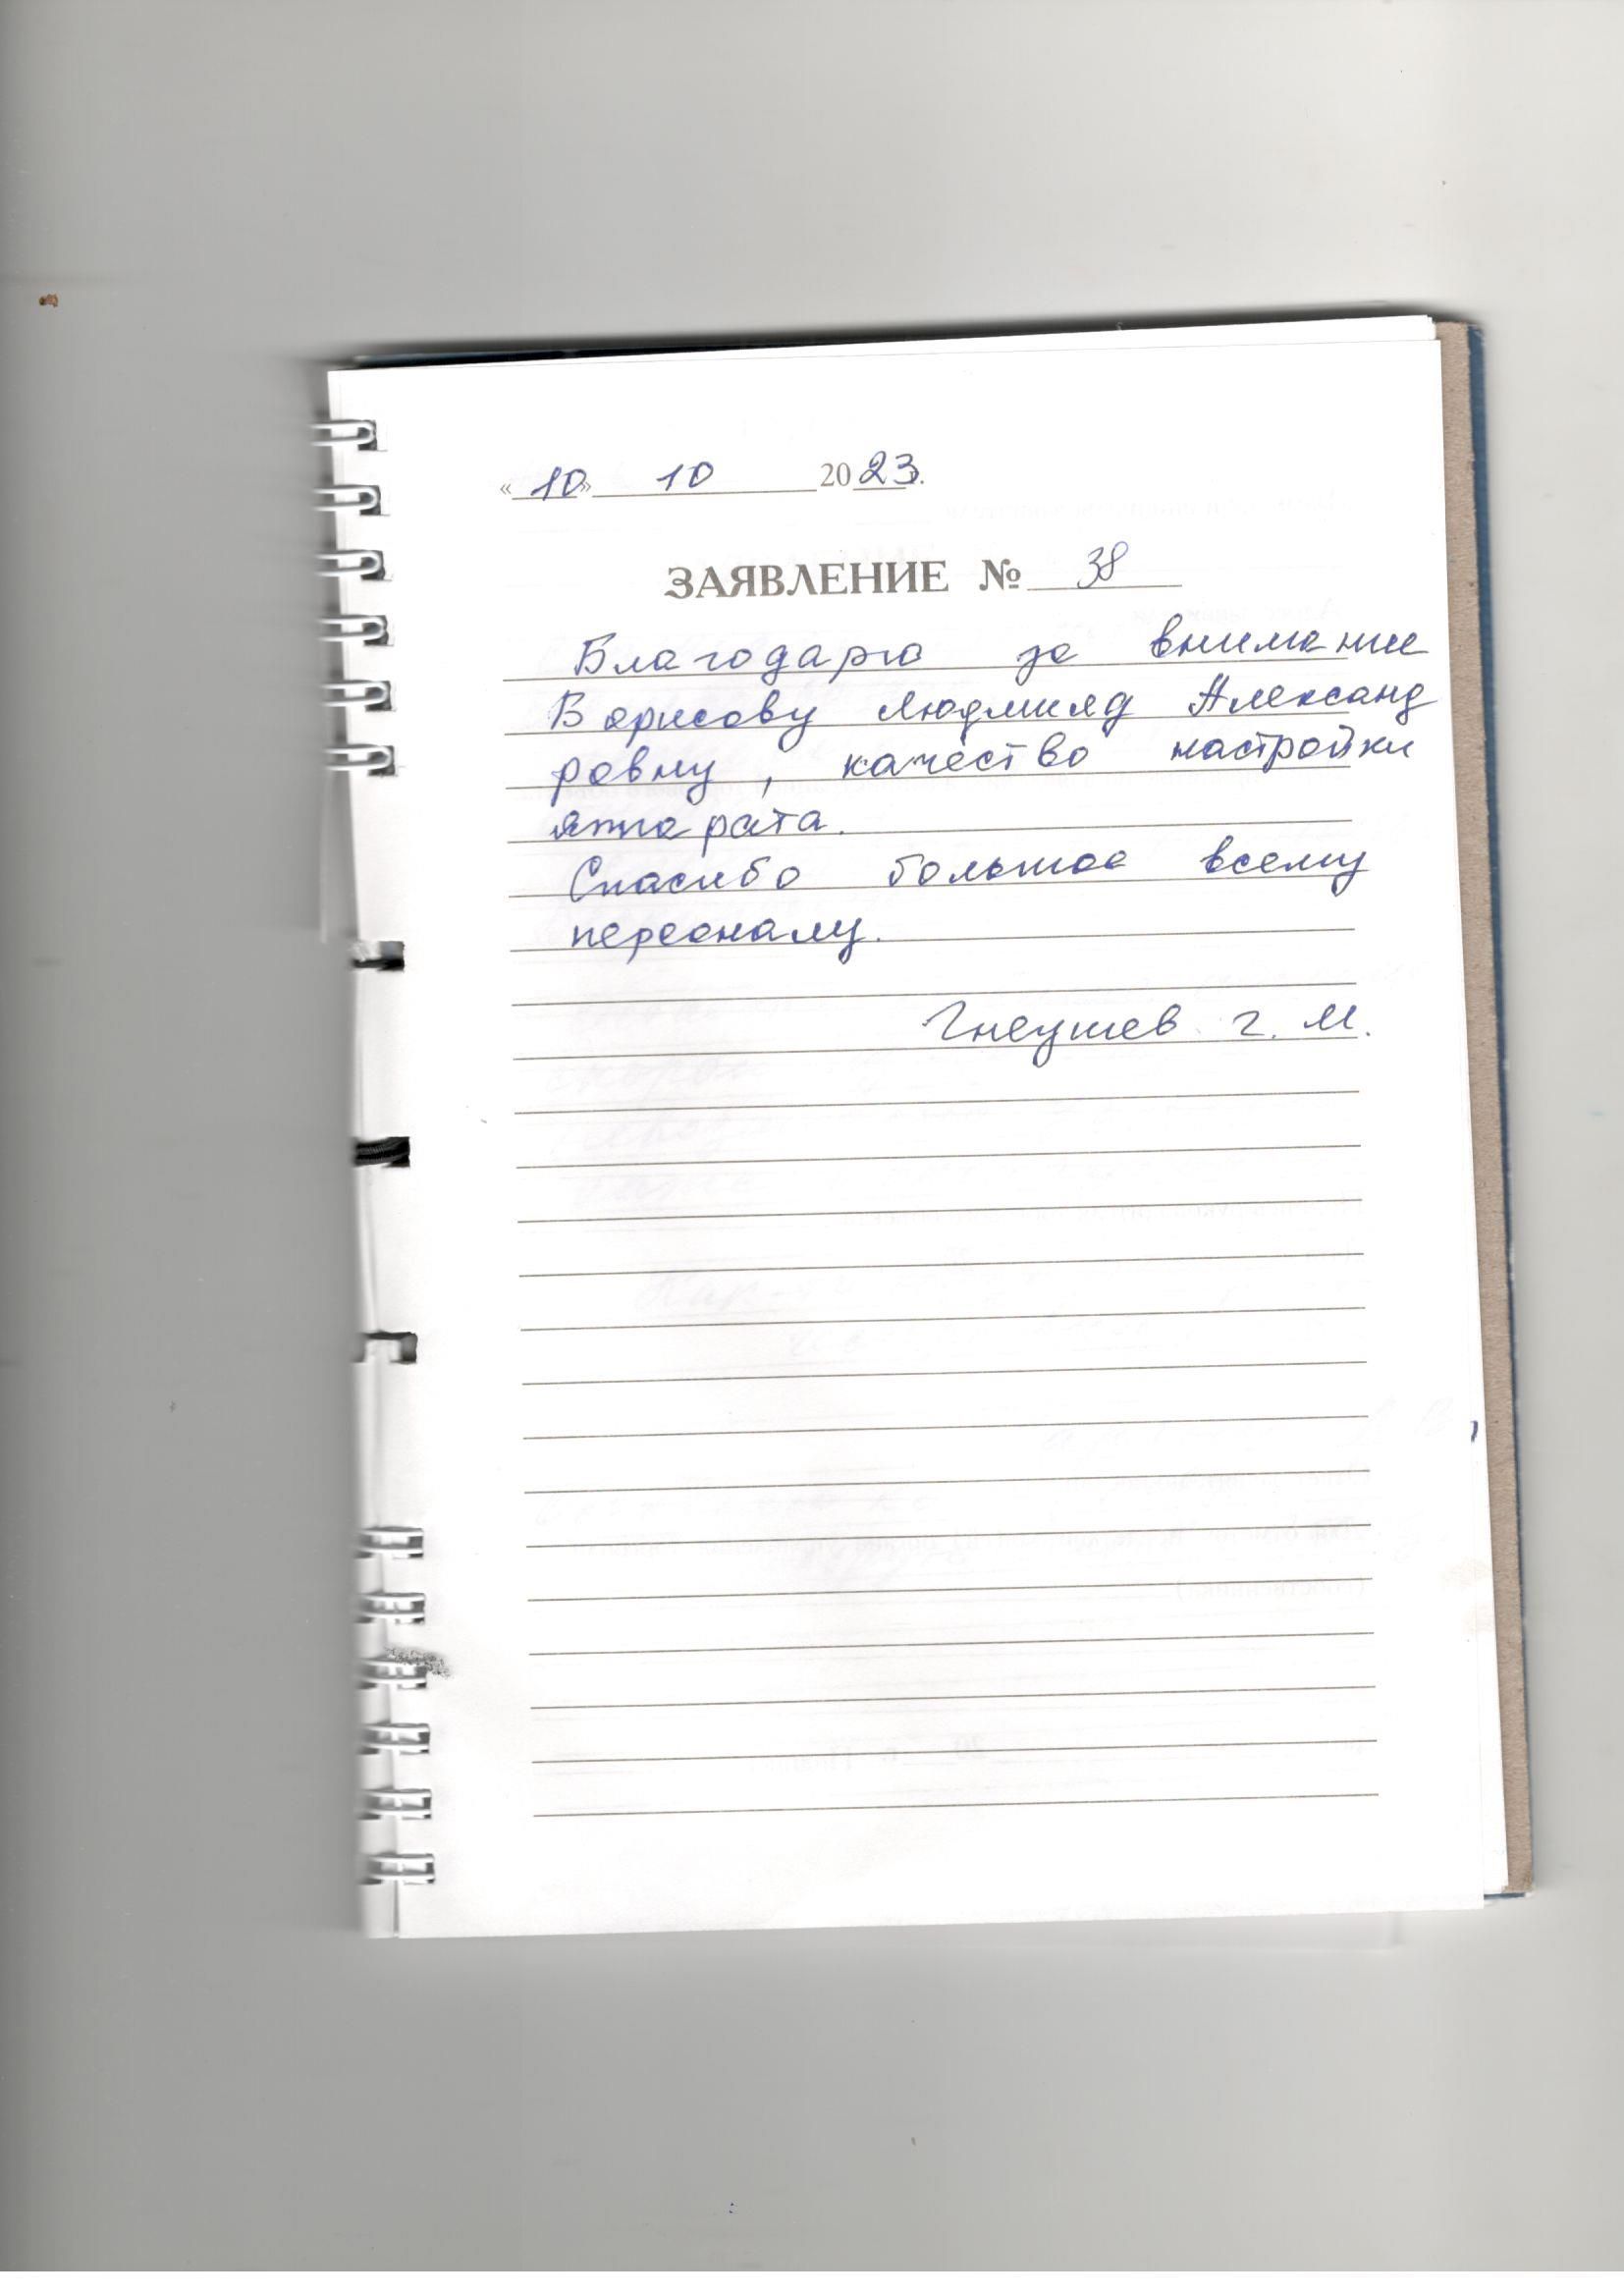 «10» 10 2023г.
ЗАЯВЛЕНИЕ № 38
Благодарю за внимание
Борисову Людмилу Александ
ровну, качество настройки
аппарата.
Спасибо большое всему
персоналу.
Гнеушев Г. М.